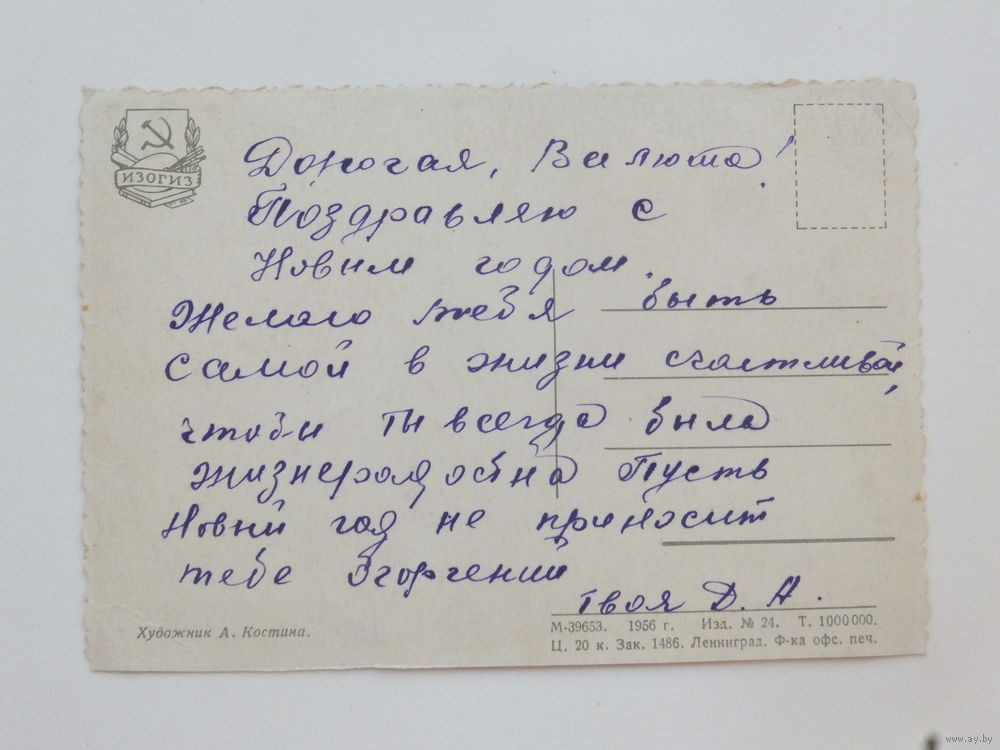 ИЗОГИЗ
Дорогая, Валюта!
Поздравляю с
Новым годом.
Желаю тебя быть
самой в жизни счастливой,
чтобы ты всегда была
жизнерадостна Пусть
Новый год не приносит
тебе Огорчений
твоя Д. А.
Художник А. Костина.
М-39653. 1956 г. Изд. № 24. Т. 1000000.
Ц. 20 к. Зак. 1486. Ленинград. Ф-ка офс. печ.
www.ay.by